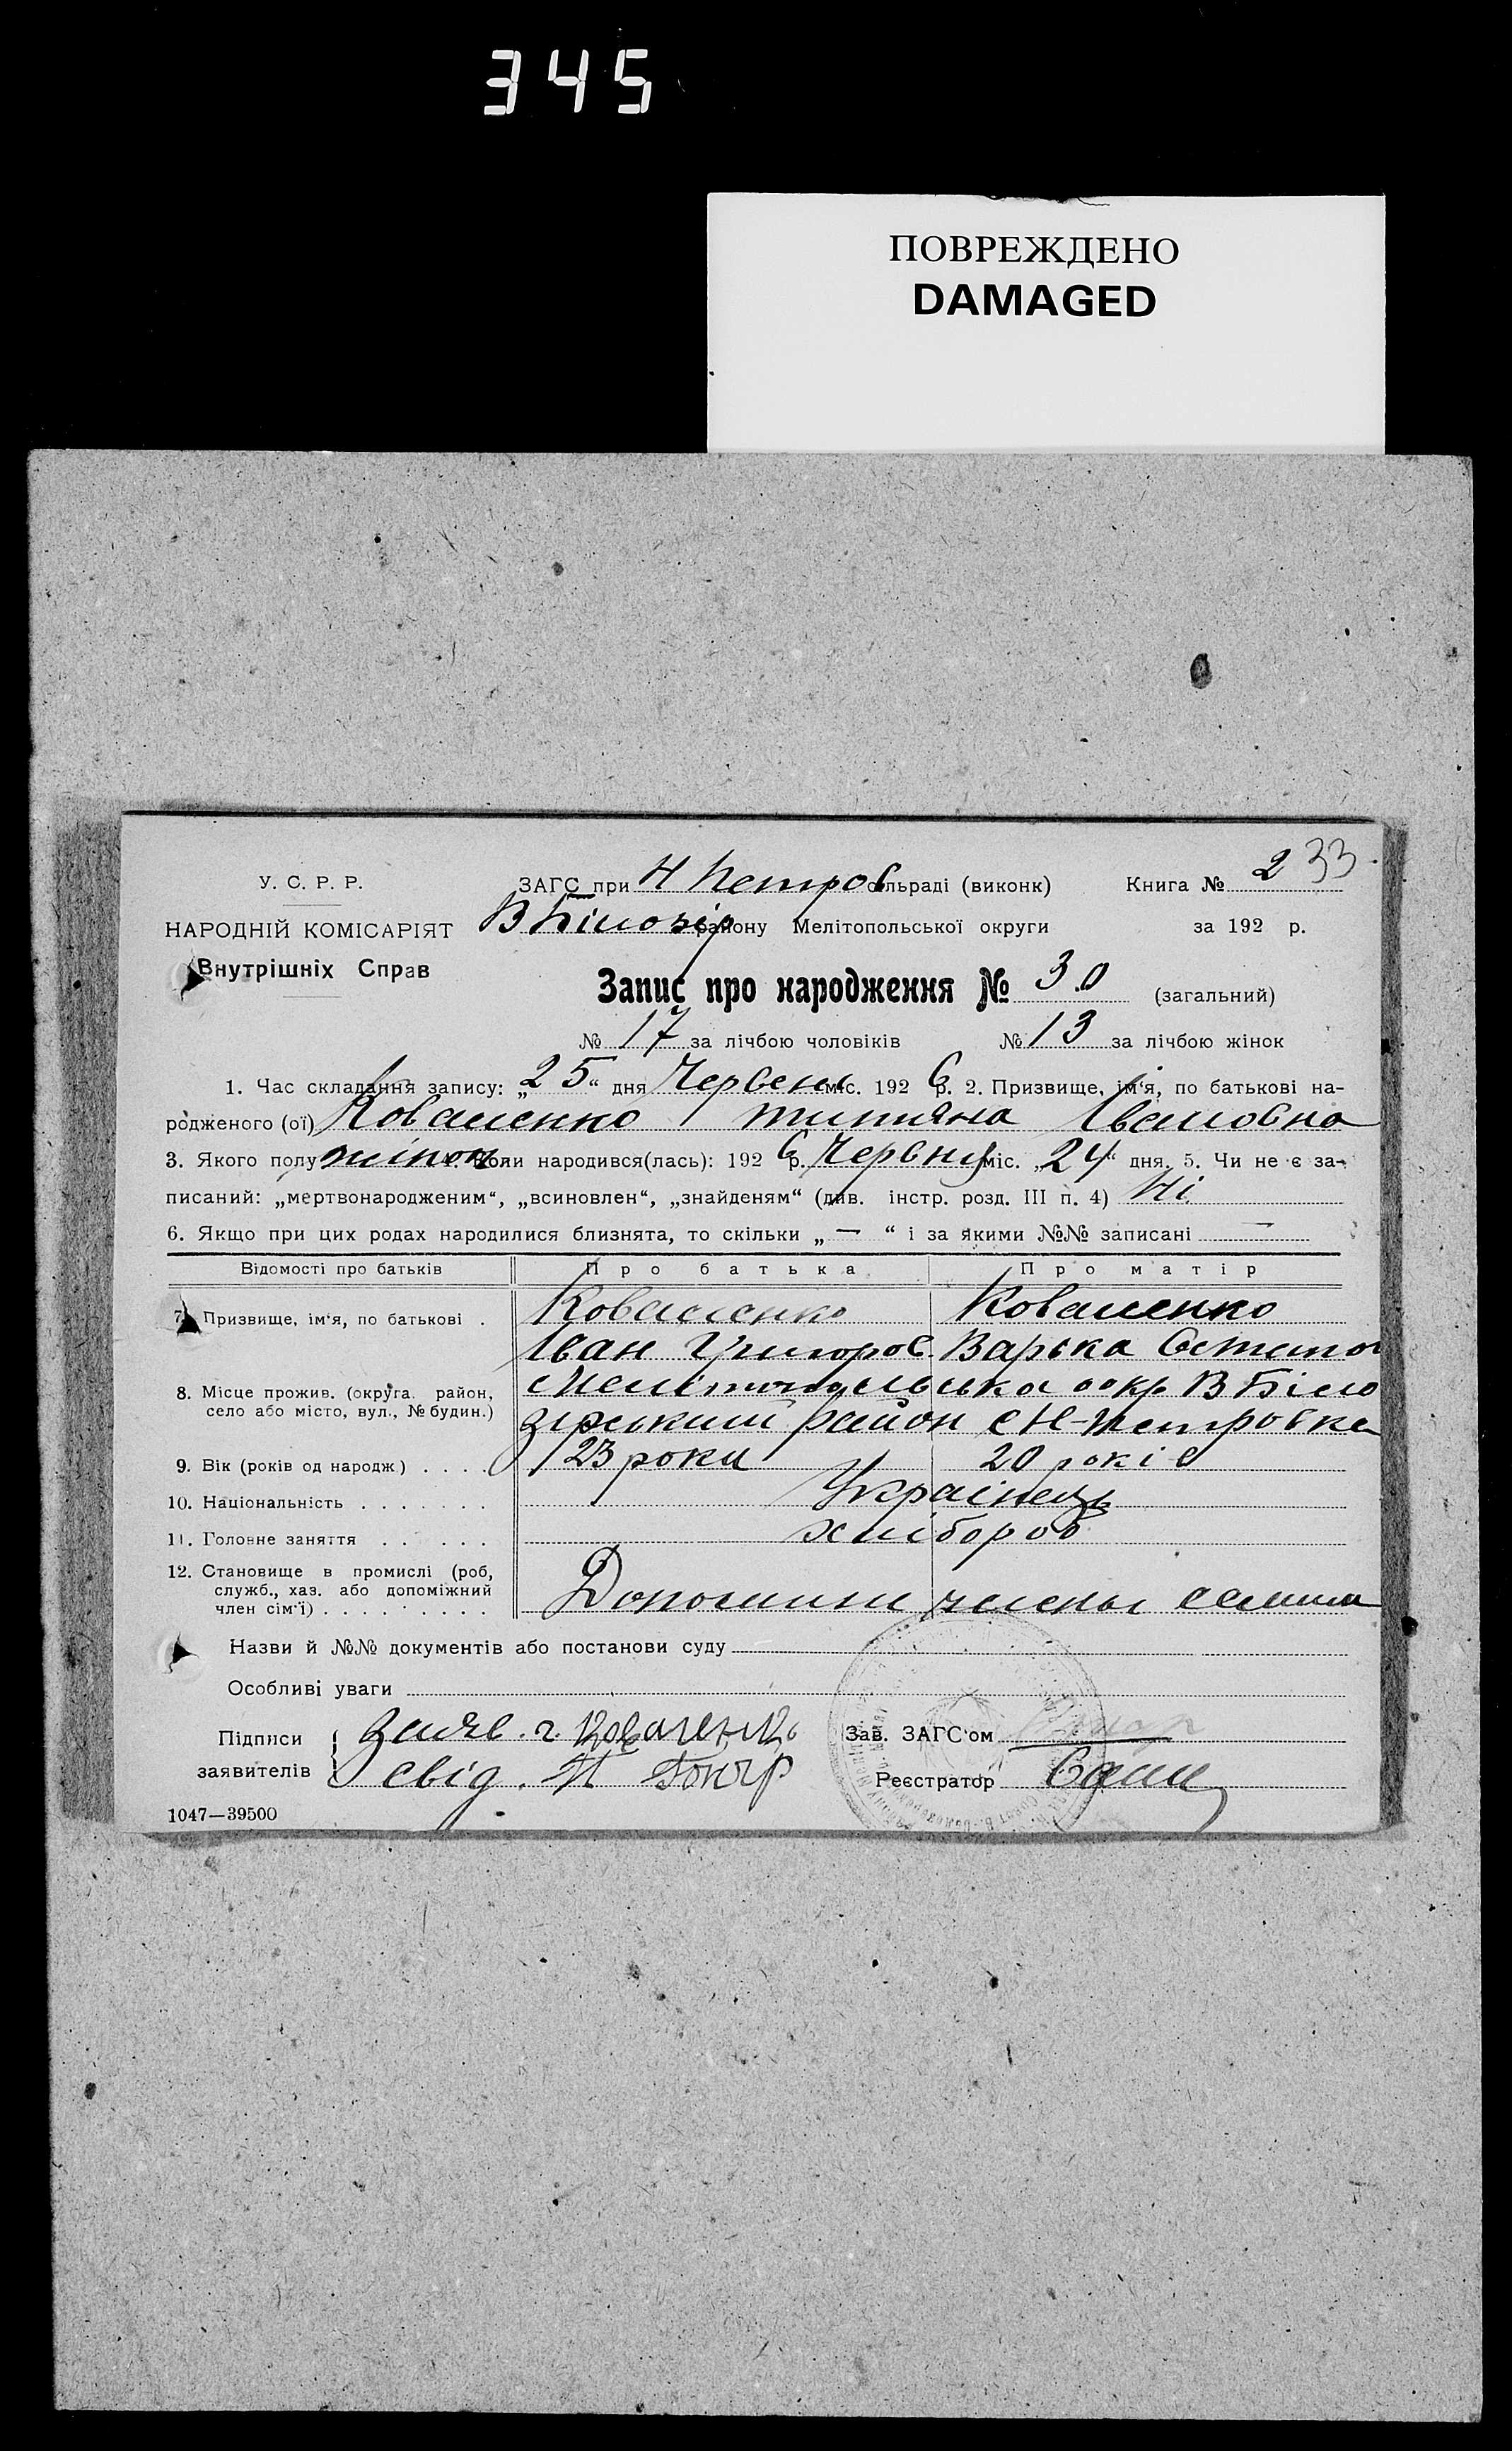 345
ПОВРЕЖДЕНО
DAMAGED
У. С. Р. Р.
НАРОДНІЙ КОМІСАРІЯТ
Внутрішніх Справ
ЗАГС при Н Петров сільраді (виконк)
Книга № 2 33
В Білозір району Мелітопольської округи
за 192 р.
Запис про народження № 30 (загальний)
№ 17 за лічбою чоловіків № 13 за лічбою жінок
1. Час складання запису: „25“ дня Червень міс. 1926 р. 2. Призвище, ім'я, по батькові на-
родженого (ої) Коваленко титяна Івановна
3. Якого полу жіноч. 4. Коли народився(лась): 1926 р. Червня міс. „24“ дня. 5. Чи не є за-
писаний: „мертвонародженим“, „всиновлен“, „знайденям“ (див. інстр. розд. III п. 4) Ні
6. Якщо при цих родах народилися близнята, то скільки „ — “ і за якими №№ записані —
Відомості про батьків Про батька Про матір
7. Призвище, ім'я, по батькові . Коваленко Коваленко
Іван Григоров. Варька Остапов
8. Місце прожив. (округа, район,
село або місто, вул., № будин.)
Мелітопольська окр В Біло
зірський район с Н-Петровка
9. Вік (років од народж.) . . . . 23 роки 20 років
10. Національність . . . . . . . Українець
11. Головне заняття . . . . . хлібороб
12. Становище в промислі (роб,
служб., хаз. або допоміжний
член сім'ї) . . . . . . . . .
Допомжни члены семии
Назви й №№ документів або постанови суду
Особливі уваги
Підписи
заявителів
Заяв. г. Коваленко
свід. Н Гончр
Зав. ЗАГС'ом
Реєстратор
1047—39500